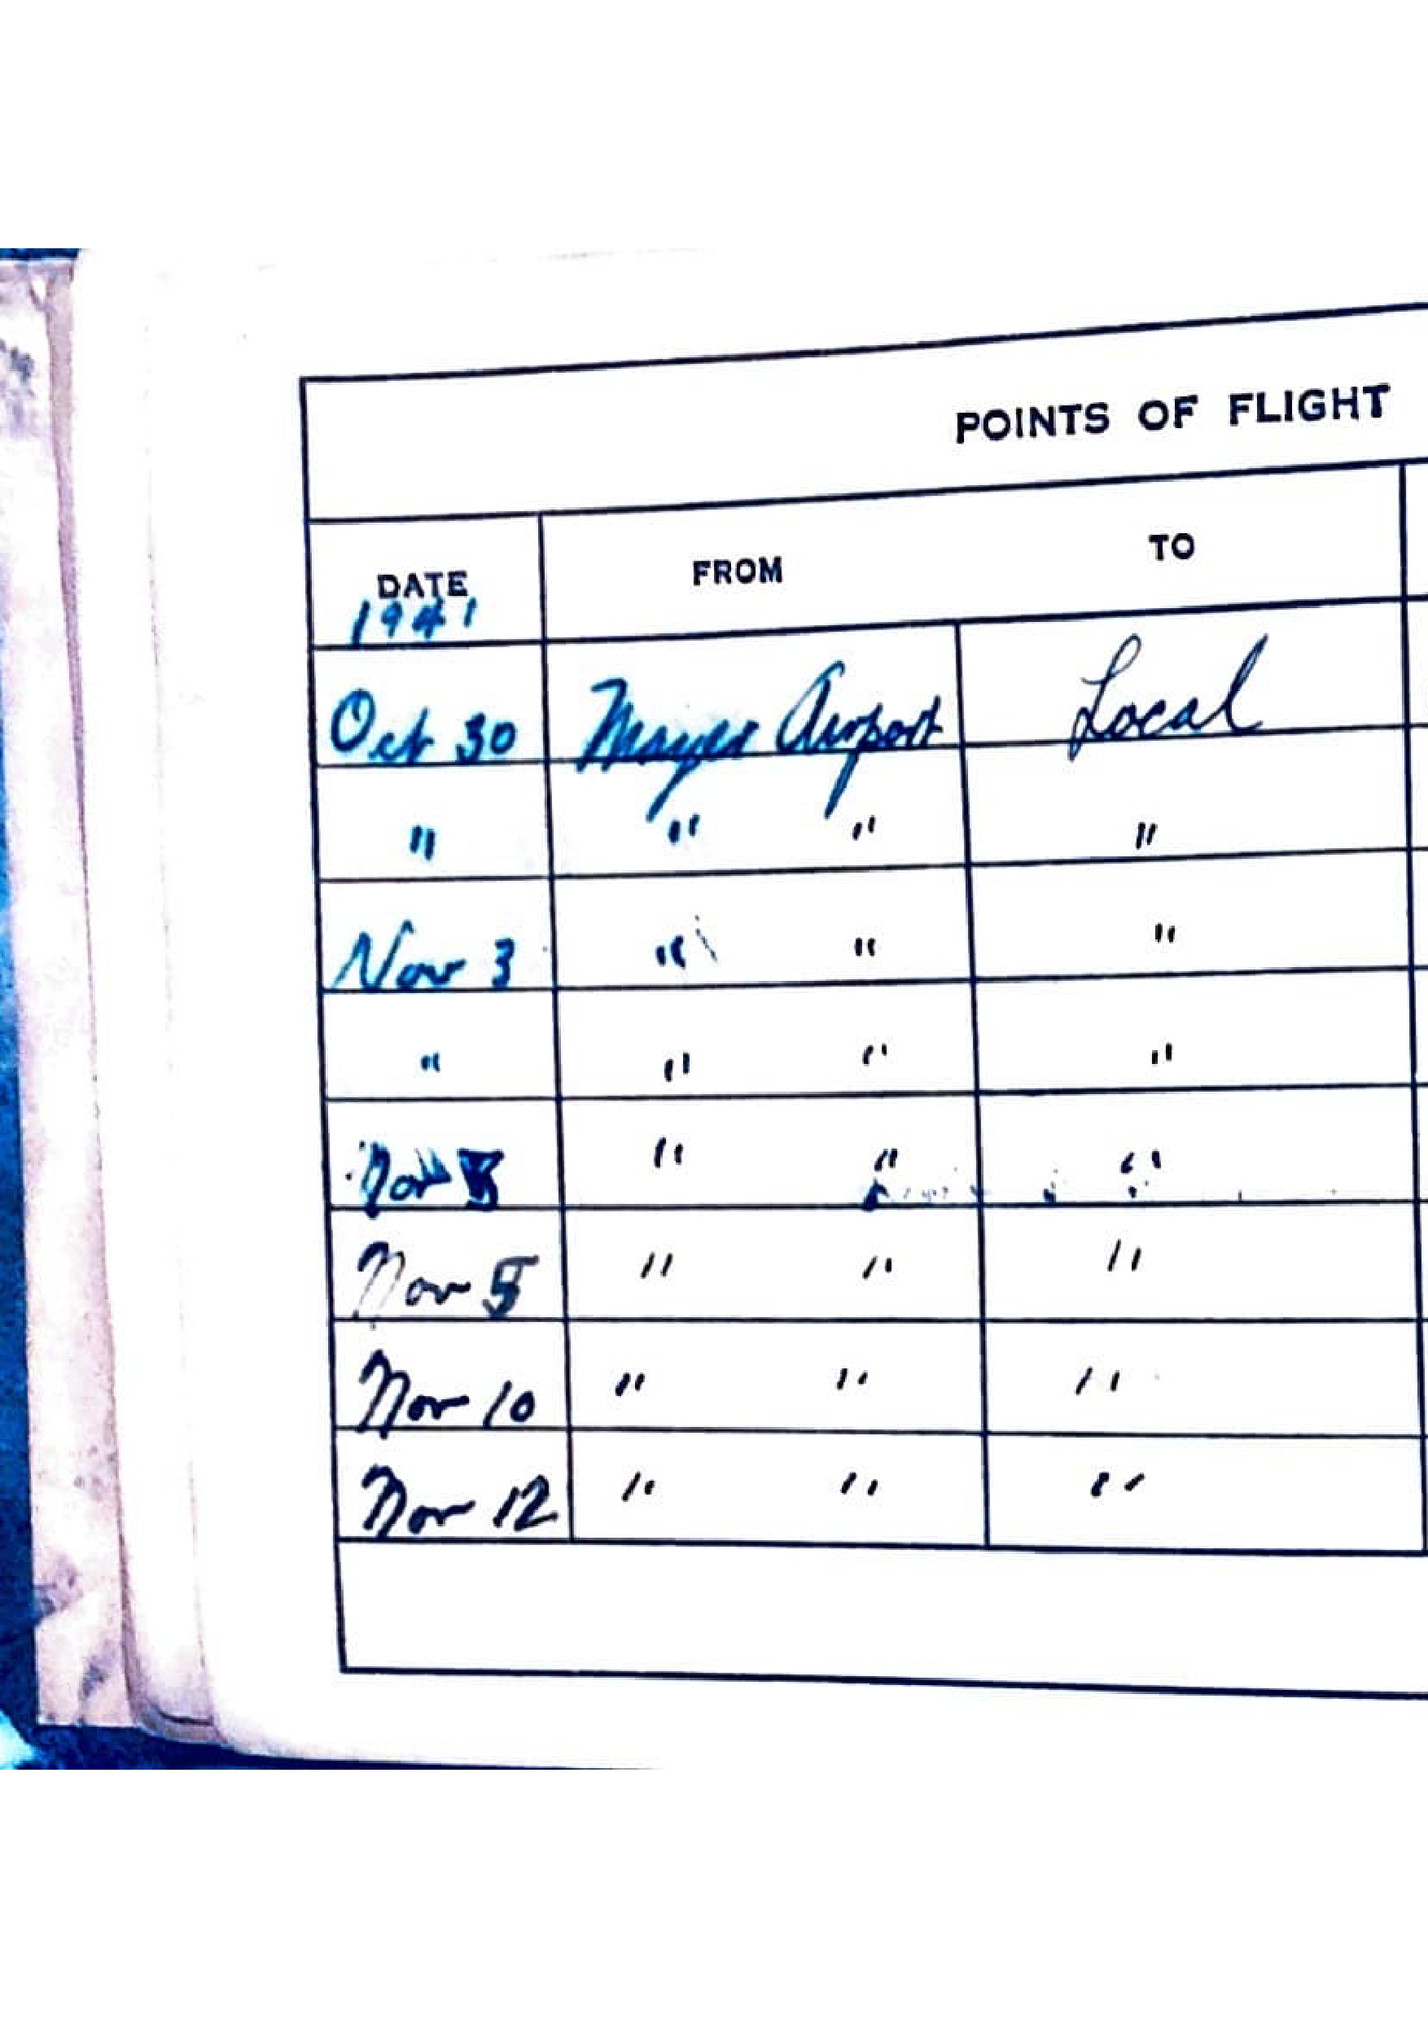 POINTS OF FLIGHT
DATE FROM TO
1941
Oct 30 Mayer Airport Local
" " " "
Nov 3 " " "
" " " "
Nov " " "
Nov 5 " " "
Nov 10 " " "
Nov 12 " " "